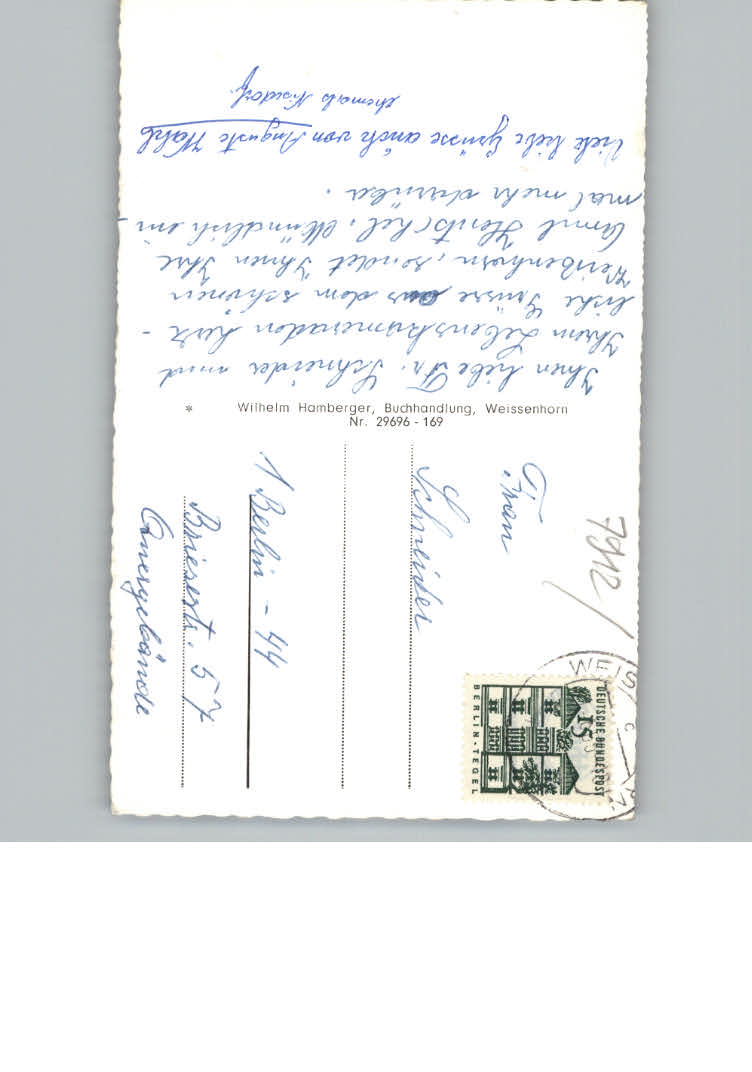 Ihnen liebe Fr. Schneider und
Ihrem Lebenskameraden herz-
liche Grüsse aus dem schönen
Weißenhorn, sendet Ihnen Ihre
Hentschel. Mündlich ein-
mal mehr darüber.
Viele liebe Grüsse auch von Auguste Wahl
ehemals
Wilhelm Hamberger, Buchhandlung, Weissenhorn
Nr. 29696 - 169
7912/
Frau
Schneider
1 Berlin - 44
Briesestr. 57
Quergebäude
WEIS
c
DEUTSCHE BUNDESPOST
15
BERLIN-TEGEL